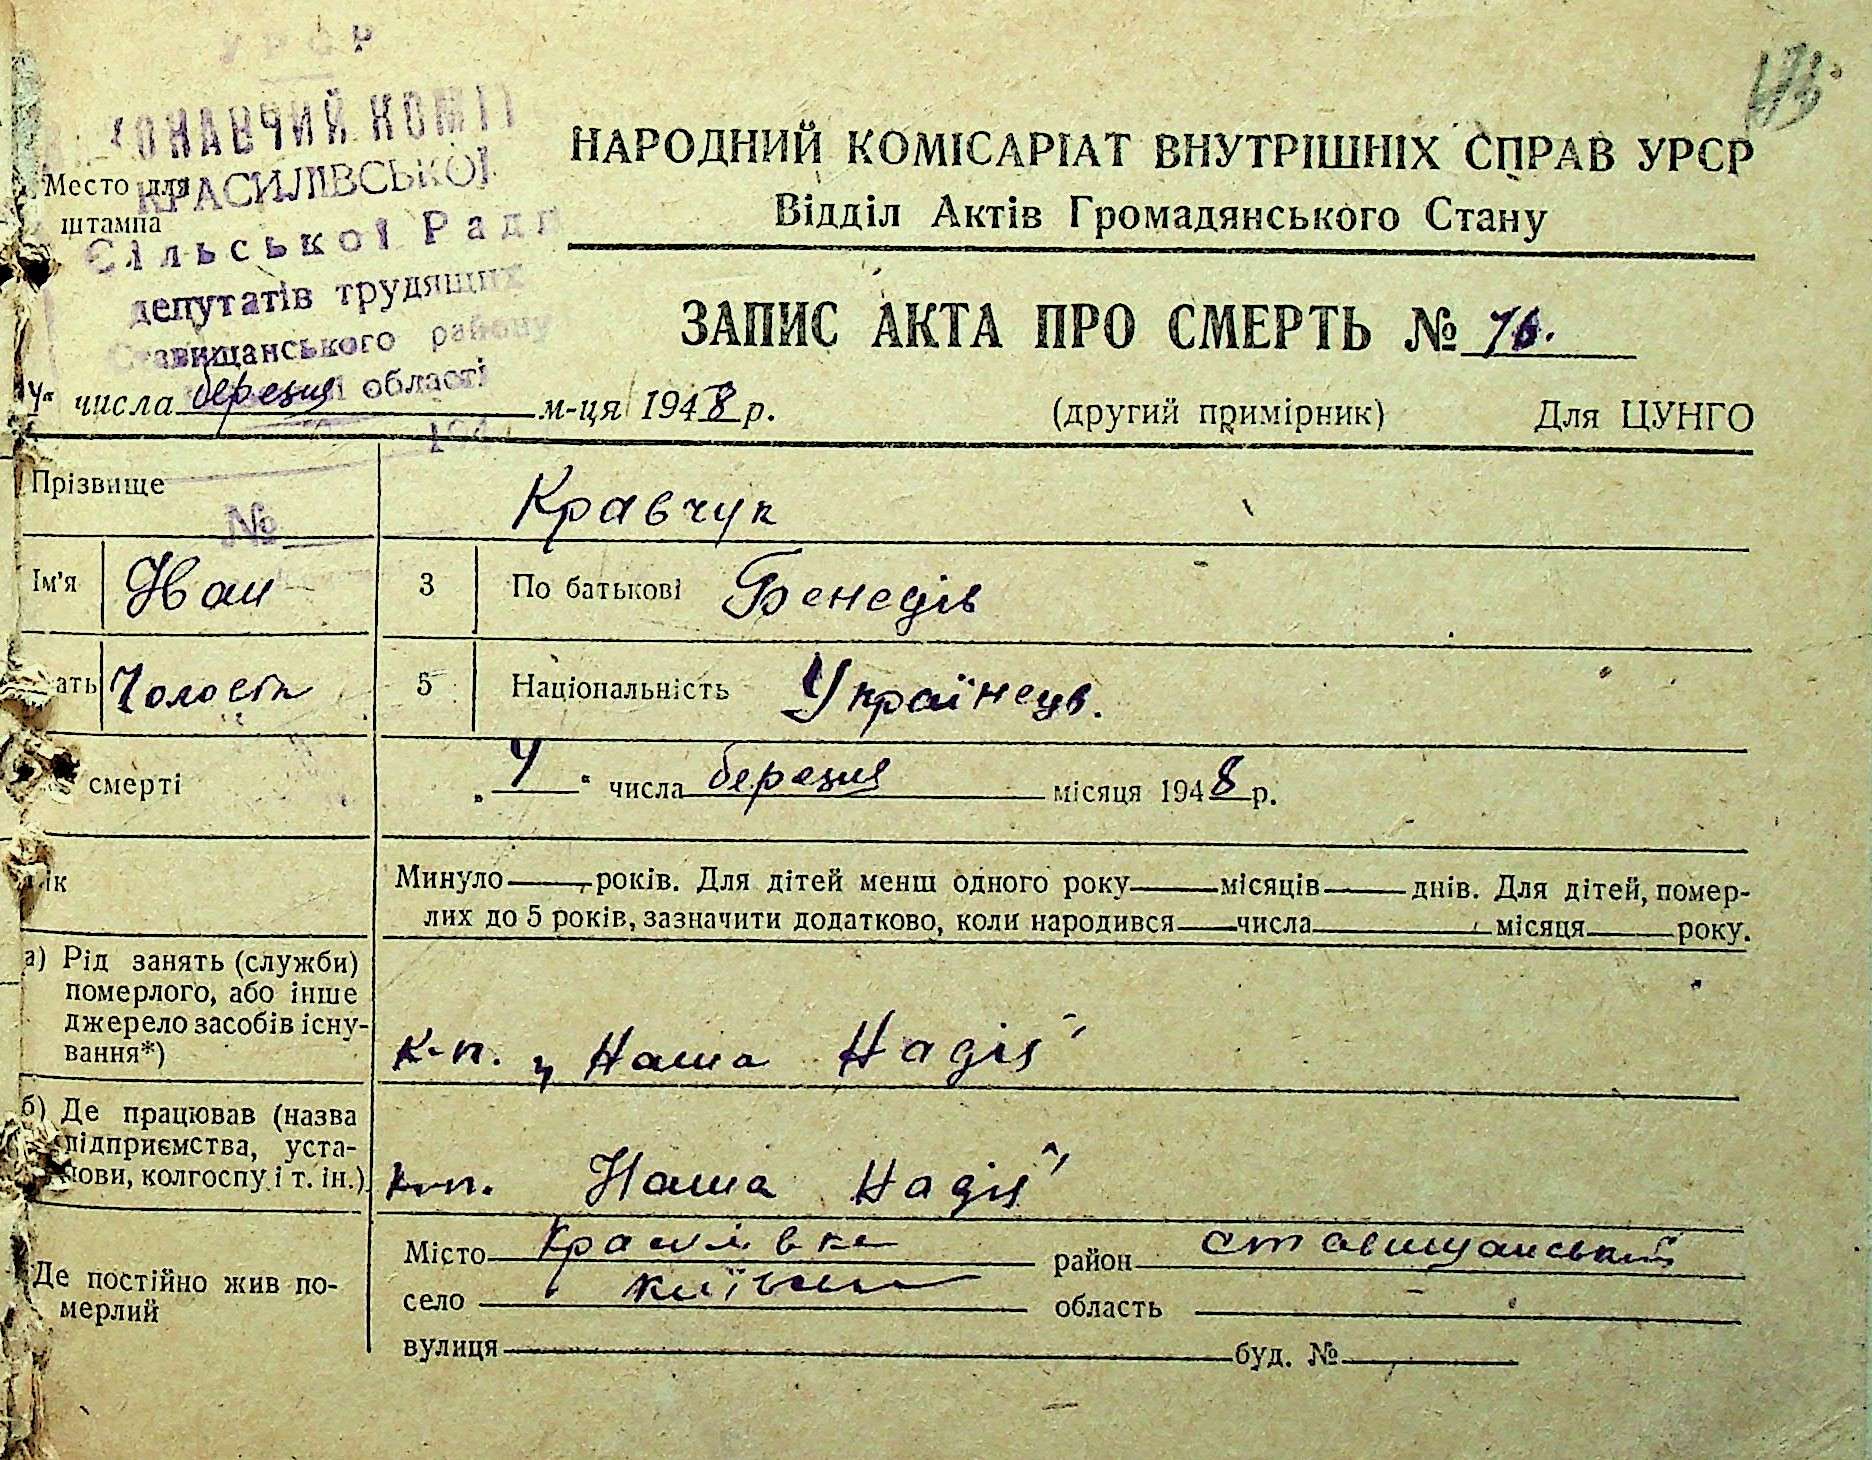 УРСР
ВИКОНАВЧИЙ КОМІТ
КРАСИЛІВСЬКОЇ
Сільської Ради
депутатів трудящих
Ставищанського району
області
194
№
Место для
штампа
НАРОДНИЙ КОМІСАРІАТ ВНУТРІШНІХ СПРАВ УРСР
Відділ Актів Громадянського Стану
ЗАПИС АКТА ПРО СМЕРТЬ № 16.
4" числа березня м-ця 1948 р. (другий примірник) Для ЦУНГО
Прізвище Кравчук
Ім'я Иван 3 По батькові Бенедів
ать Чоловік 5 Національність Українець.
смерті „4" числа березня місяця 1948 р.
Вік Минуло років. Для дітей менш одного року місяців днів. Для дітей, помер-
лих до 5 років, зазначити додатково, коли народився числа місяця року.
а) Рід занять (служби)
померлого, або інше
джерело засобів існу-
вання*) к-п. „Наша Надія"
б) Де працював (назва
підприємства, уста-
нови, колгоспу і т. ін.) к-п. Наша Надія"
Де постійно жив по-
мерлий
Місто Красилівка район Ставищанський
село Київська область
вулиця буд. №